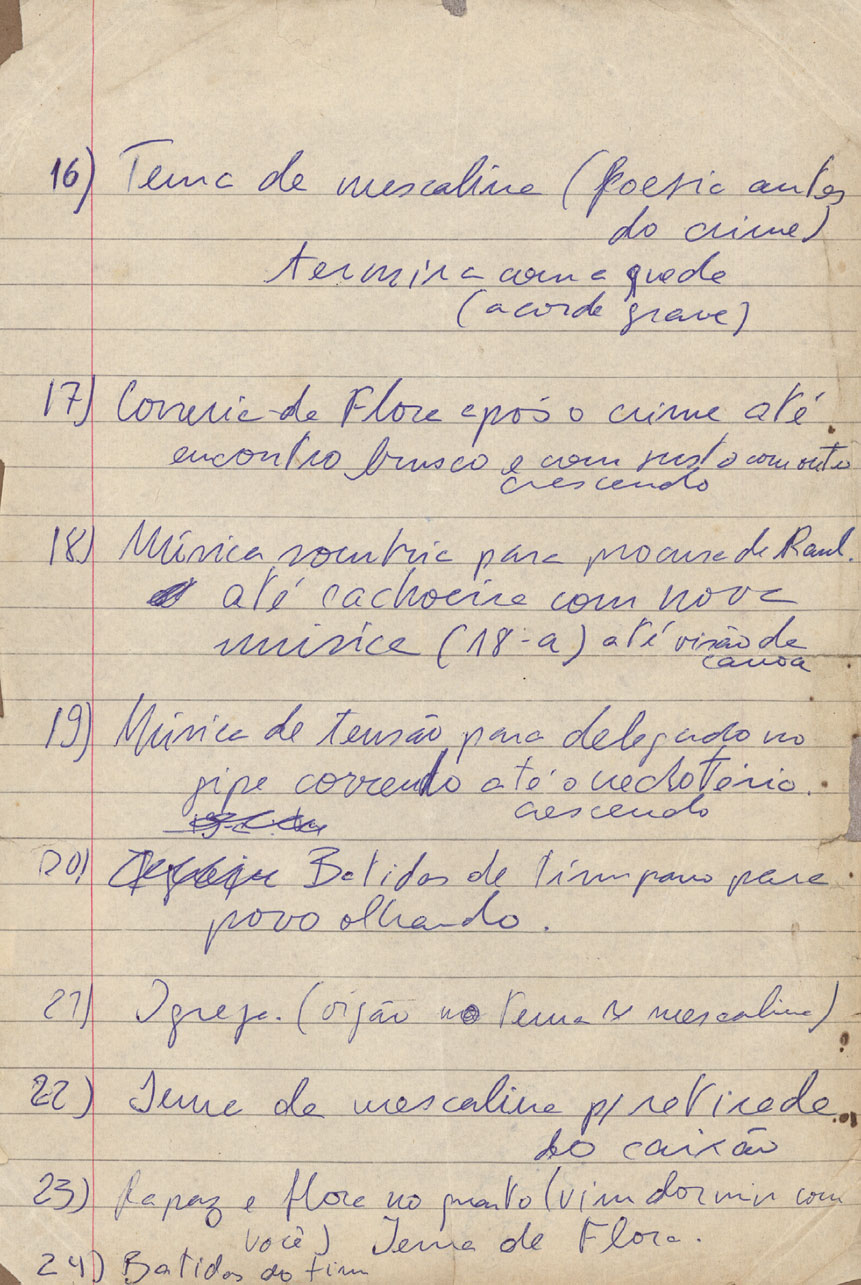 16) Tema da mescalina (Poesia antes
do crime)
termina com a queda
(acorde grave)
17) Correria de Flora após o crime até
encontro brusco e com susto com outro
crescendo
18) Música sombria para procura de Raul.
até cachoeira com nova
música (18-a) até visão da
canoa
19) Música de tensão para delegado no
jipe correndo até o necrotério.
crescendo
20) Batidas de tímpano para
povo olhando.
21) Igreja. (órgão no tema mescalina)
22) Tema da mescalina p/ retirada
do caixão
23) Rapaz e flora no quarto (vim dormir com
você) Tema de Flora.
24) Batidas do fim